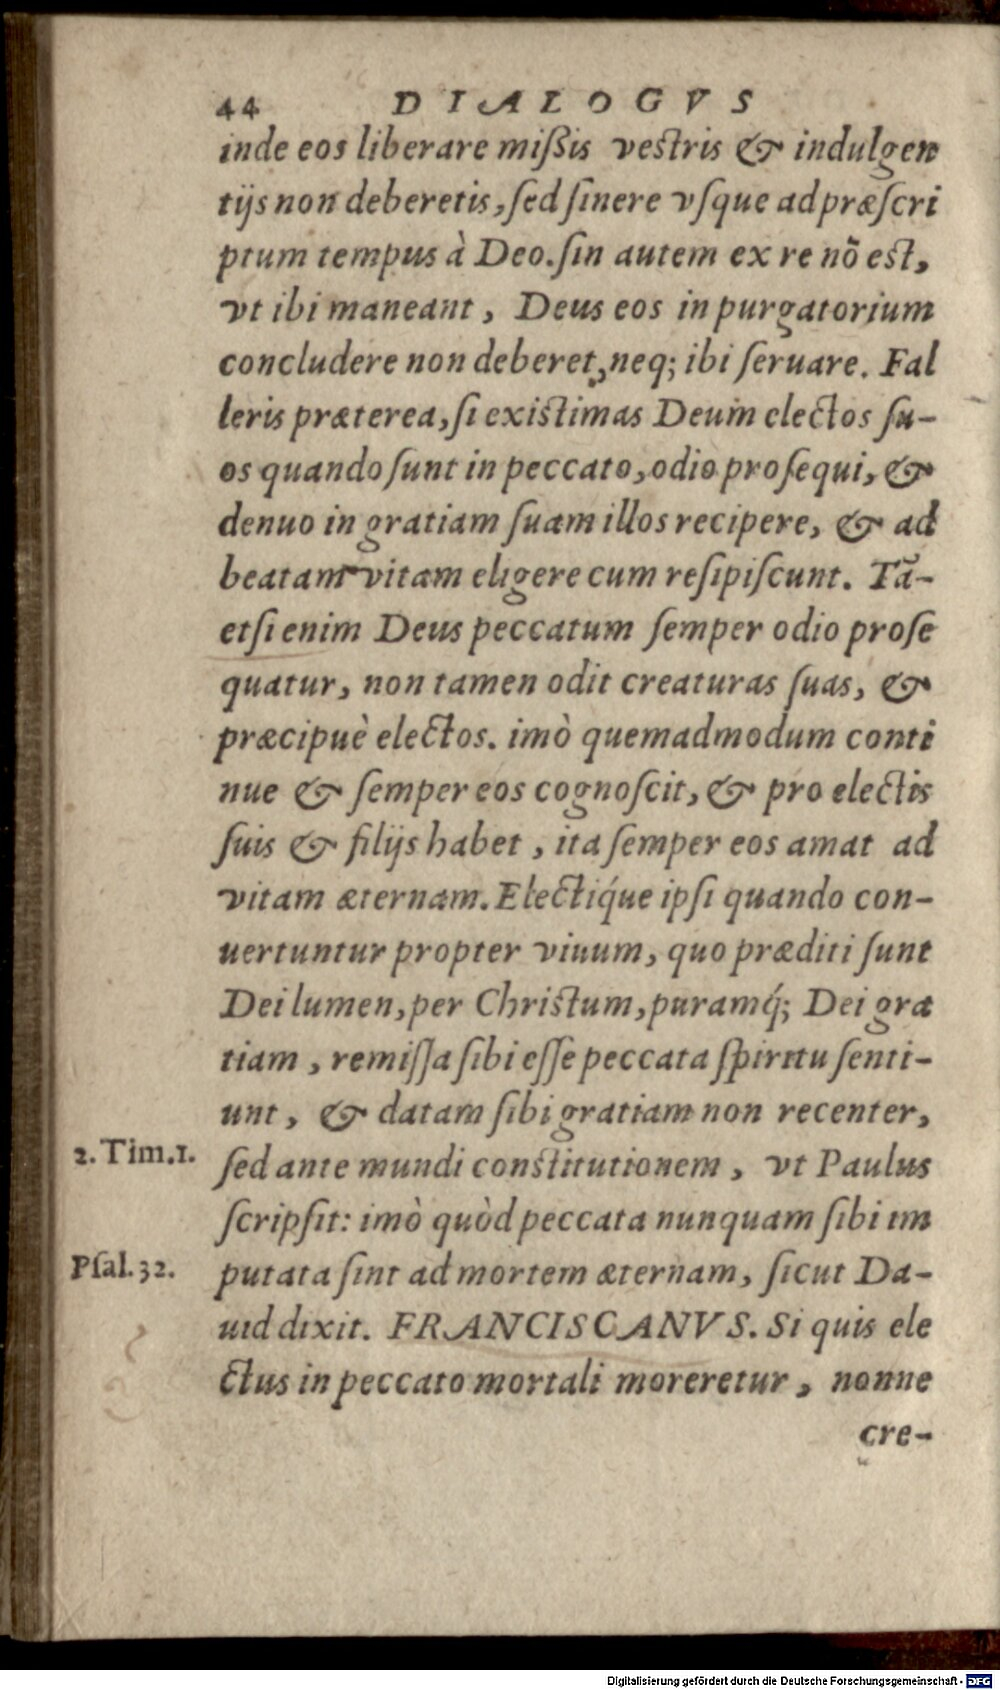 44 DIALOGVS
inde eos liberare mißis vestris & indulgen
tijs non deberetis, ſed ſinere vſque ad præſcri
ptum tempus à Deo. ſin autem ex re nõ est,
vt ibi maneant, Deus eos in purgatorium
concludere non deberet, neq; ibi ſeruare. Fal
leris præterea, ſi existimas Deum electos ſu-
os quando ſunt in peccato, odio proſequi, &
denuo in gratiam ſuam illos recipere, & ad
beatam vitam eligere cum reſipiſcunt. Tã-
etſi enim Deus peccatum ſemper odio proſe
quatur, non tamen odit creaturas ſuas, &
præcipuè electos. imò quemadmodum conti
nue & ſemper eos cognoſcit, & pro electis
ſuis & filijs habet, ita ſemper eos amat ad
vitam æternam. Electiq́ue ipſi quando con-
uertuntur propter viuum, quo præditi ſunt
Dei lumen, per Christum, puramq́; Dei gra
tiam, remiſſa ſibi eſſe peccata ſpiritu ſenti-
unt, & datam ſibi gratiam non recenter,
2. Tim. 1. ſed ante mundi constitutionem, vt Paulus
ſcripſit: imò quòd peccata nunquam ſibi im
Pſal. 32. putata ſint ad mortem æternam, ſicut Da-
uid dixit. FRANCISCANVS. Si quis ele
ctus in peccato mortali moreretur, nonne
cre-
Digitalisierung gefördert durch die Deutsche Forschungsgemeinschaft - DFG